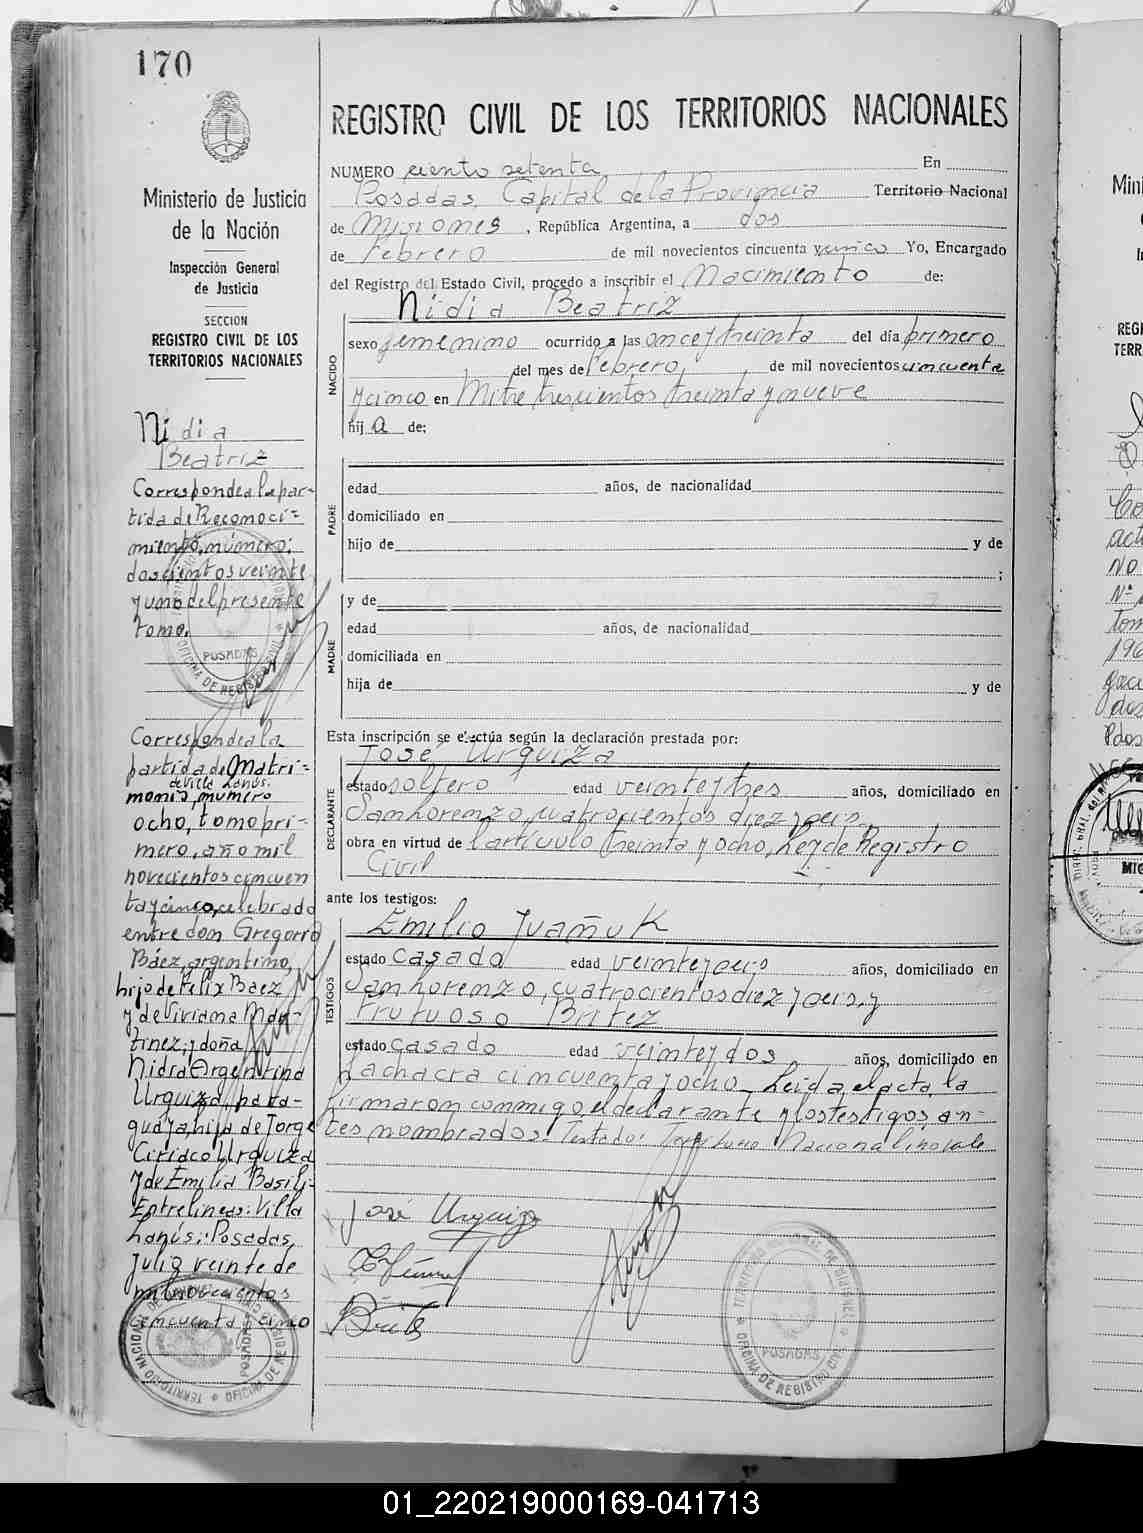 170
Ministerio de Justicia
de la Nación
Inspección General
de Justicia
SECCION
REGISTRO CIVIL DE LOS
TERRITORIOS NACIONALES
Nidia
Beatriz
Corresponde a la par-
tida de Reconoci=
miento, número:
doscientos veinte
y uno del presente
tomo.
Corresponde a la
partida de Matri=
de Villa Lanús:
monio, número
ocho, tomo pri-
mero, año mil
novecientos cincuen
ta y cinco, celebrado
entre don Gregorio
Báez, argentino,
hijo de Felix Baez
y de Viviana Mar-
tinez; y doña
Nidia Argentina
Urquiza, para-
guaya, hija de Jorge
Ciriaco Urquiza
y de Emilia Basili=
Entrelineas: Villa
Lanús: Posadas,
Julio veinte de
mil novecientos
cincuenta y cinco
REGISTRO CIVIL DE LOS TERRITORIOS NACIONALES
NUMERO ciento setenta En
Posadas, Capital de la Provincia Territorio Nacional
de Misiones, República Argentina, a dos
de Febrero de mil novecientos cincuenta y cinco Yo, Encargado
del Registro del Estado Civil, procedo a inscribir el Nacimiento de:
Nidia Beatriz
NACIDO
sexo femenino ocurrido a las once y treinta del día primero
del mes de Febrero, de mil novecientos cincuenta
y cinco en Mitre trescientos treinta y nueve
hij a de:
PADRE
edad años, de nacionalidad
domiciliado en
hijo de y de
;
MADRE
y de
edad años, de nacionalidad
domiciliada en
hija de y de
Esta inscripción se efectúa según la declaración prestada por:
José Urquiza
DECLARANTE
estado soltero edad veinte y tres años, domiciliado en
San Lorenzo, cuatrocientos diez y seis
obra en virtud de l'artículo treinta y ocho, Ley de Registro
Civil
ante los testigos:
Emilio Ivañuk
TESTIGOS
estado casado edad veinte y seis años, domiciliado en
San Lorenzo, cuatrocientos diez y seis, y
Frutuoso Britez
estado casado edad veinte y dos años, domiciliado en
La chacra cincuenta y ocho_ Leida el acta, la
firmaron conmigo, el declarante y los testigos, an-
tes nombrados. Testado: Territorio Nacional: no vale
José Urquiza
TERRITORIO NACIONAL DE MISIONES
POSADAS
OFICINA DE REGISTRO CIVIL
01_220219000169-041713